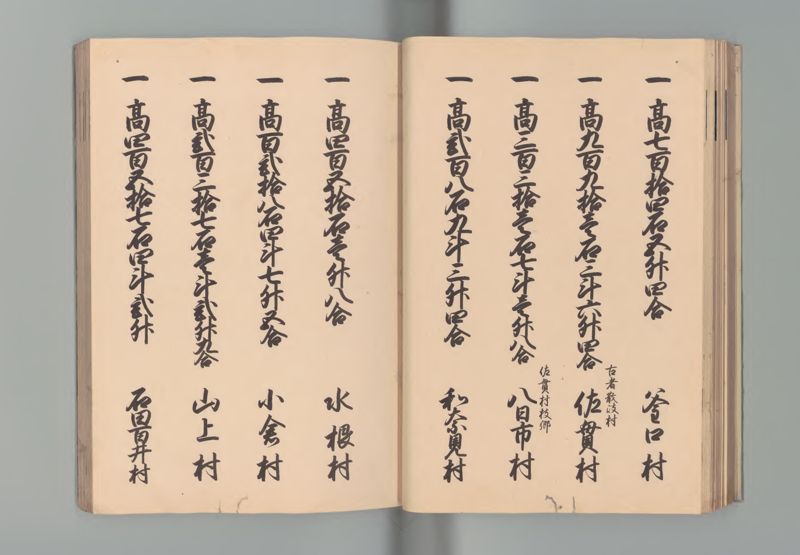 一 高七百拾四石五升四合 釜口村
一 高九百九拾壱石三斗六升四合 佐貫村
古者散波村
一 高三百三拾壱石七斗壱升八合 八日市村
佐貫村枝郷
一 高弐百八石九斗三升四合 和奈見村
一 高四百五拾石壱升八合 水根村
一 高百弐拾八石四斗七升五合 小倉村
一 高弐百三拾七石壱斗弐升九合 山上村
一 高四百五拾七石四斗弐升 石田百井村